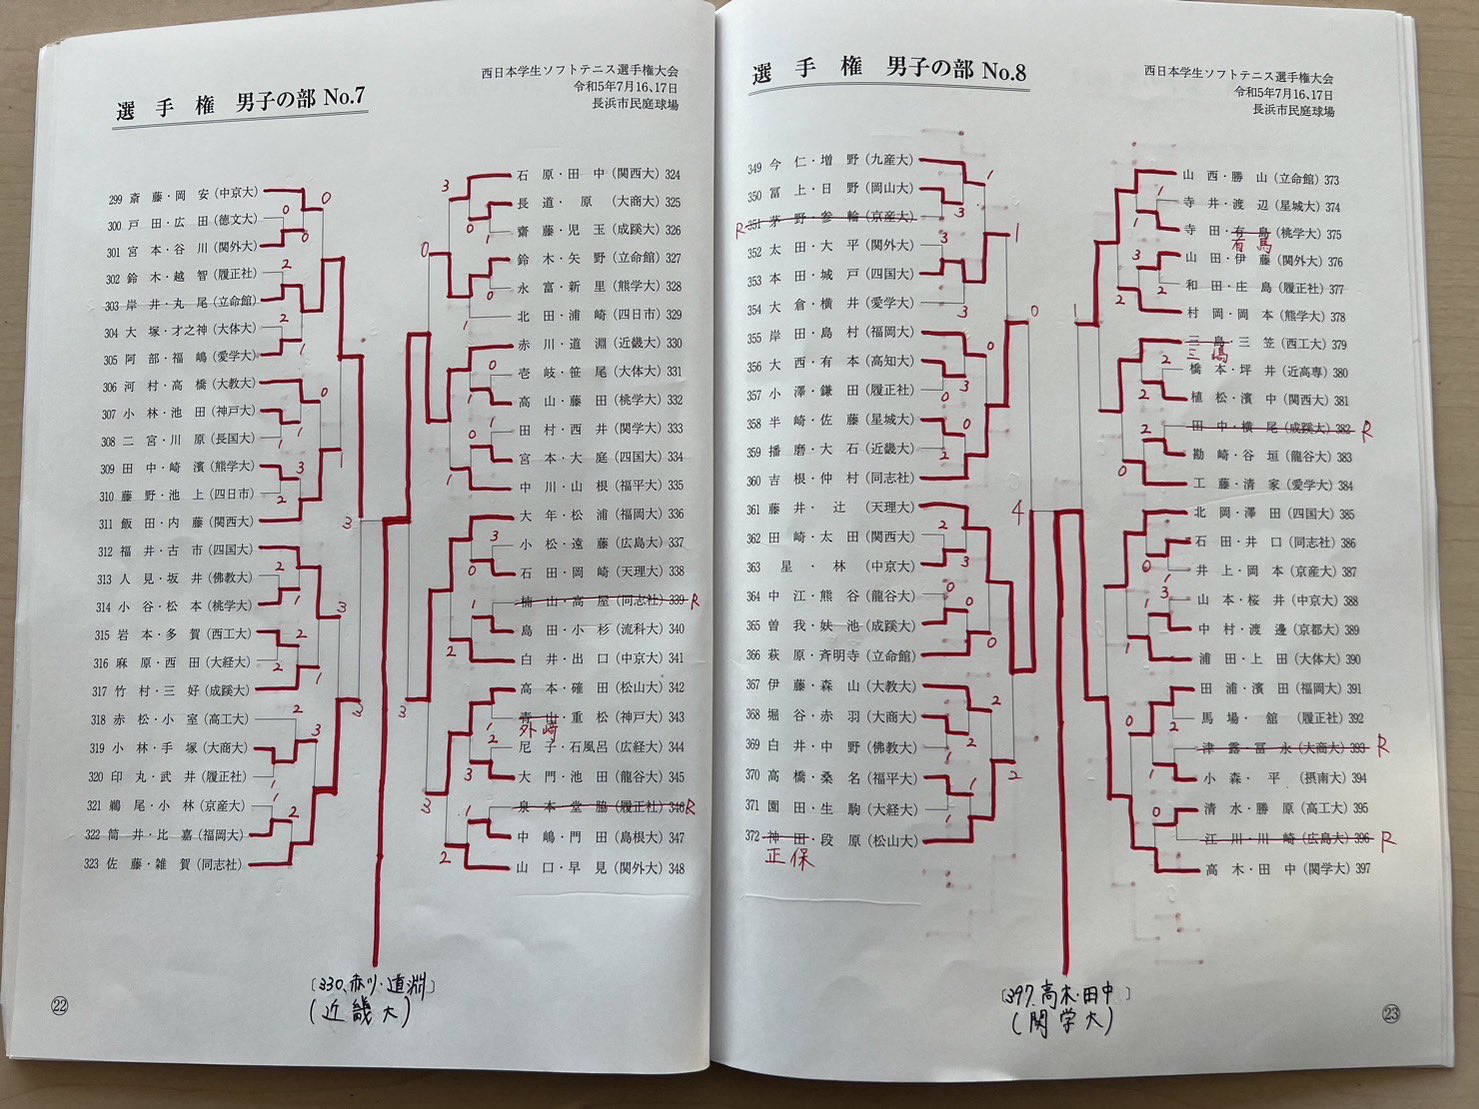 選 手 権 男子の部 No.7
西日本学生ソフトテニス選手権大会
令和5年7月16、17日
長浜市民庭球場
299 斎 藤・岡 安 (中京大)
300 戸 田・広 田 (徳文大)
301 宮 本・谷 川 (関外大)
302 鈴 木・越 智 (履正社)
303 岸 井・丸 尾 (立命館)
304 大 塚・才之神 (大体大)
305 阿 部・福 嶋 (愛学大)
306 河 村・高 橋 (大教大)
307 小 林・池 田 (神戸大)
308 二 宮・川 原 (長国大)
309 田 中・崎 濱 (熊学大)
310 藤 野・池 上 (四日市)
311 飯 田・内 藤 (関西大)
312 福 井・古 市 (四国大)
313 人 見・坂 井 (佛教大)
314 小 谷・松 本 (桃学大)
315 岩 本・多 賀 (西工大)
316 麻 原・西 田 (大経大)
317 竹 村・三 好 (成蹊大)
318 赤 松・小 室 (高工大)
319 小 林・手 塚 (大商大)
320 印 丸・武 井 (履正社)
321 鵜 尾・小 林 (京産大)
322 筒 井・比 嘉 (福岡大)
323 佐 藤・雑 賀 (同志社)
石 原・田 中 (関西大) 324
長 道・ 原 (大商大) 325
齋 藤・児 玉 (成蹊大) 326
鈴 木・矢 野 (立命館) 327
永 富・新 里 (熊学大) 328
北 田・浦 崎 (四日市) 329
赤 川・道 淵 (近畿大) 330
壱 岐・笹 尾 (大体大) 331
高 山・藤 田 (桃学大) 332
田 村・西 井 (関学大) 333
宮 本・大 庭 (四国大) 334
中 川・山 根 (福平大) 335
大 年・松 浦 (福岡大) 336
小 松・遠 藤 (広島大) 337
石 田・岡 崎 (天理大) 338
楠 山・高 屋 (同志社) 339 R
島 田・小 杉 (流科大) 340
白 井・出 口 (中京大) 341
高 本・確 田 (松山大) 342
青 山・重 松 (神戸大) 343
外 崎
尼 子・石風呂 (広経大) 344
大 門・池 田 (龍谷大) 345
泉 本・堂 脇 (履正社) 346 R
中 嶋・門 田 (島根大) 347
山 口・早 見 (関外大) 348
〔330、赤川・道淵〕
(近畿大)
22
選 手 権 男子の部 No.8
西日本学生ソフトテニス選手権大会
令和5年7月16、17日
長浜市民庭球場
349 今 仁・増 野 (九産大)
350 冨 上・日 野 (岡山大)
R 351 茅 野・参 輪 (京産大)
352 太 田・大 平 (関外大)
353 本 田・城 戸 (四国大)
354 大 倉・横 井 (愛学大)
355 岸 田・島 村 (福岡大)
356 大 西・有 本 (高知大)
357 小 澤・鎌 田 (履正社)
358 半 崎・佐 藤 (星城大)
359 播 磨・大 石 (近畿大)
360 吉 根・仲 村 (同志社)
361 藤 井・ 辻 (天理大)
362 田 崎・太 田 (関西大)
363 星 ・ 林 (中京大)
364 中 江・熊 谷 (龍谷大)
365 曽 我・妹 池 (成蹊大)
366 萩 原・斉明寺 (立命館)
367 伊 藤・森 山 (大教大)
368 堀 谷・赤 羽 (大商大)
369 白 井・中 野 (佛教大)
370 高 橋・桑 名 (福平大)
371 園 田・生 駒 (大経大)
372 神 田・段 原 (松山大)
正 保
山 西・勝 山 (立命館) 373
寺 井・渡 辺 (星城大) 374
寺 田・有 島 (桃学大) 375
有 馬
山 田・伊 藤 (関外大) 376
和 田・庄 島 (履正社) 377
村 岡・岡 本 (熊学大) 378
三 島・三 笠 (西工大) 379
三 嶋
橋 本・坪 井 (近高専) 380
植 松・濱 中 (関西大) 381
田 中・横 尾 (成蹊大) 382 R
勘 崎・谷 垣 (龍谷大) 383
工 藤・清 家 (愛学大) 384
北 岡・澤 田 (四国大) 385
石 田・井 口 (同志社) 386
井 上・岡 本 (京産大) 387
山 本・桜 井 (中京大) 388
中 村・渡 邊 (京都大) 389
浦 田・上 田 (大体大) 390
田 浦・濱 田 (福岡大) 391
馬 場・ 舘 (履正社) 392
津 露・冨 永 (大商大) 393 R
小 森・ 平 (摂南大) 394
清 水・勝 原 (高工大) 395
江 川・川 崎 (広島大) 396 R
高 木・田 中 (関学大) 397
〔397、高木・田中〕
(関学大)
23